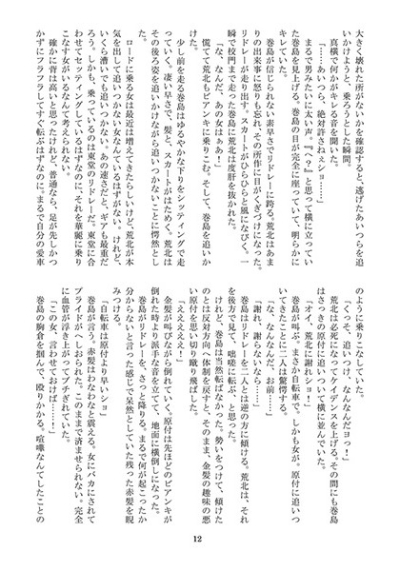 大きく壊れた所がないかを確認すると、逃げたあいつらを追
いかけようと、乗ろうとした瞬間。
真横で何かがキレる音を聞いた。
「……あいつら、絶対許さないッショ……」
まるで男みたいに太い声。『へ？』と思って横に立ってい
た巻島を見上げる。巻島の目が完全に座っていて、明らかに
キレていた。
巻島が信じられない素早さでリドレーに跨る。荒北はあま
りの出来事に怒りも忘れ、その所作に目がくぎづけになった。
リドレーが走り出す。スカートがひらひらと風になびく。一
瞬で校門まで走った巻島に荒北は度肝を抜かれた。
「な、なんだ、あの女はぁあ！」
慌てて荒北もビアンキに乗りこむ。そして、巻島を追いか
けた。
少し前を走る巻島はゆるやかな下りをシッティングで走
っていく。凄い早さで、髪と、スカートがはためく。荒北は
その後ろ姿を追いかけながら追いつかないことに愕然とし
た。
ロードに乗る女は最近は増えてきたらしいけど、荒北が本
気を出して追いつかない女なんているはずがない。けれど、
いくら漕いでも追いつかない。あの速さだと、ギアも最重だ
ろう。しかも、乗っているのは東堂のリドレーだ。東堂に合
わせてセッティングしているはずなのに、それを華麗に乗り
こなす女がいるなんて考えられない。
確かに背は高いと思ったけれど、普通なら、足が先しかつ
かずにフラフラしてすぐ転ぶはずなのに。まるで自分の愛車
のように乗りこなしていた。
「くっそ、追いつけ、なんなんだヨっ！」
荒北は必死になってケイデンスを上げる。その間にも巻島
はさっきの原付に追いついて横に並んでいた。
「オイ、荒北に謝れショ！」
巻島が叫ぶ。まさか自転車で、しかも女が、原付に追いつ
いてきたことに二人は驚愕する。
「な、なんなんだ、お前……」
「謝れ、謝らないなら……」
巻島はリドレーを二人とは逆の方に傾ける。荒北は、それ
を後方で見て、咄嗟に転ぶ、と思った。
けれど、巻島は当然転ばなかった。勢いをつけて、傾けた
のとは反対方向へ体制を戻すと、そのまま、金髪の趣味の悪
い原付を思い切り蹴り飛ばした。
「ええええぇ！」
金髪が叫びながら倒れていく。原付は先ほどのビアンキが
倒れた時より派手な音を立てて、地面に横倒しになった。
巻島がリドレーを、さっと降りる。まるで何が起こったか
分からないと言った感じで呆然としていた残った赤髪を睨
みつける。
「自転車は原付より早いショ」
巻島が言う。赤髪はわなわなと震える。女にバカにされて
プライドがへしおられた。このままで済ませられない。完全
に血管が浮き上がってブチぎれていた。
「この女、言わせておけば……！」
巻島の胸倉を掴んで、殴りかかる。喧嘩なんてしたことの
12